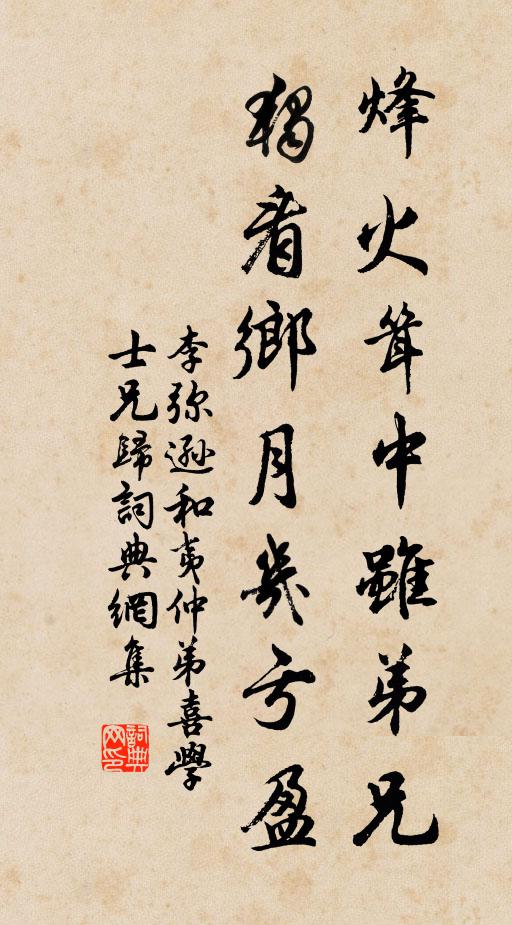 烽火茸中雖弟兄
獨看鄉月幾亏盈
李弥遜和夷仲弟喜學
士兄歸詞典網集
詞典
网印